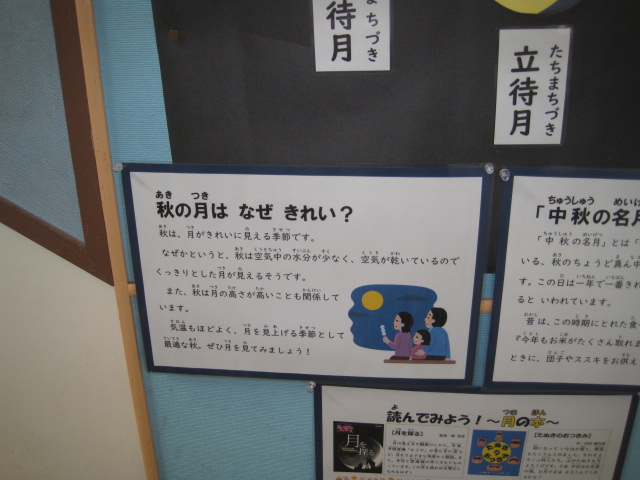 待月
まちづき
立待月
たちまちづき
秋の月は なぜ きれい？
秋は、月がきれいに見える季節です。
なぜかというと、秋は空気中の水分が少なく、空気が乾いているので
くっきりとした月が見えるそうです。
また、秋は月の高さが高いことも関係して
います。
気温もほどよく、月を見上げる季節として
最適な秋。ぜひ月を見てみましょう！
「中秋の名月
「中秋の名月」とは「
いる、秋のちょうど真ん中
す。この日は一年で一番き
ると いわれています。
昔は、この時期にとれた食
『今年もお米がたくさん取れま
ときに、団子やススキをお供え
読んでみよう！～月の本～
月を探る
【月を探る】
【たぬきのおつきみ】